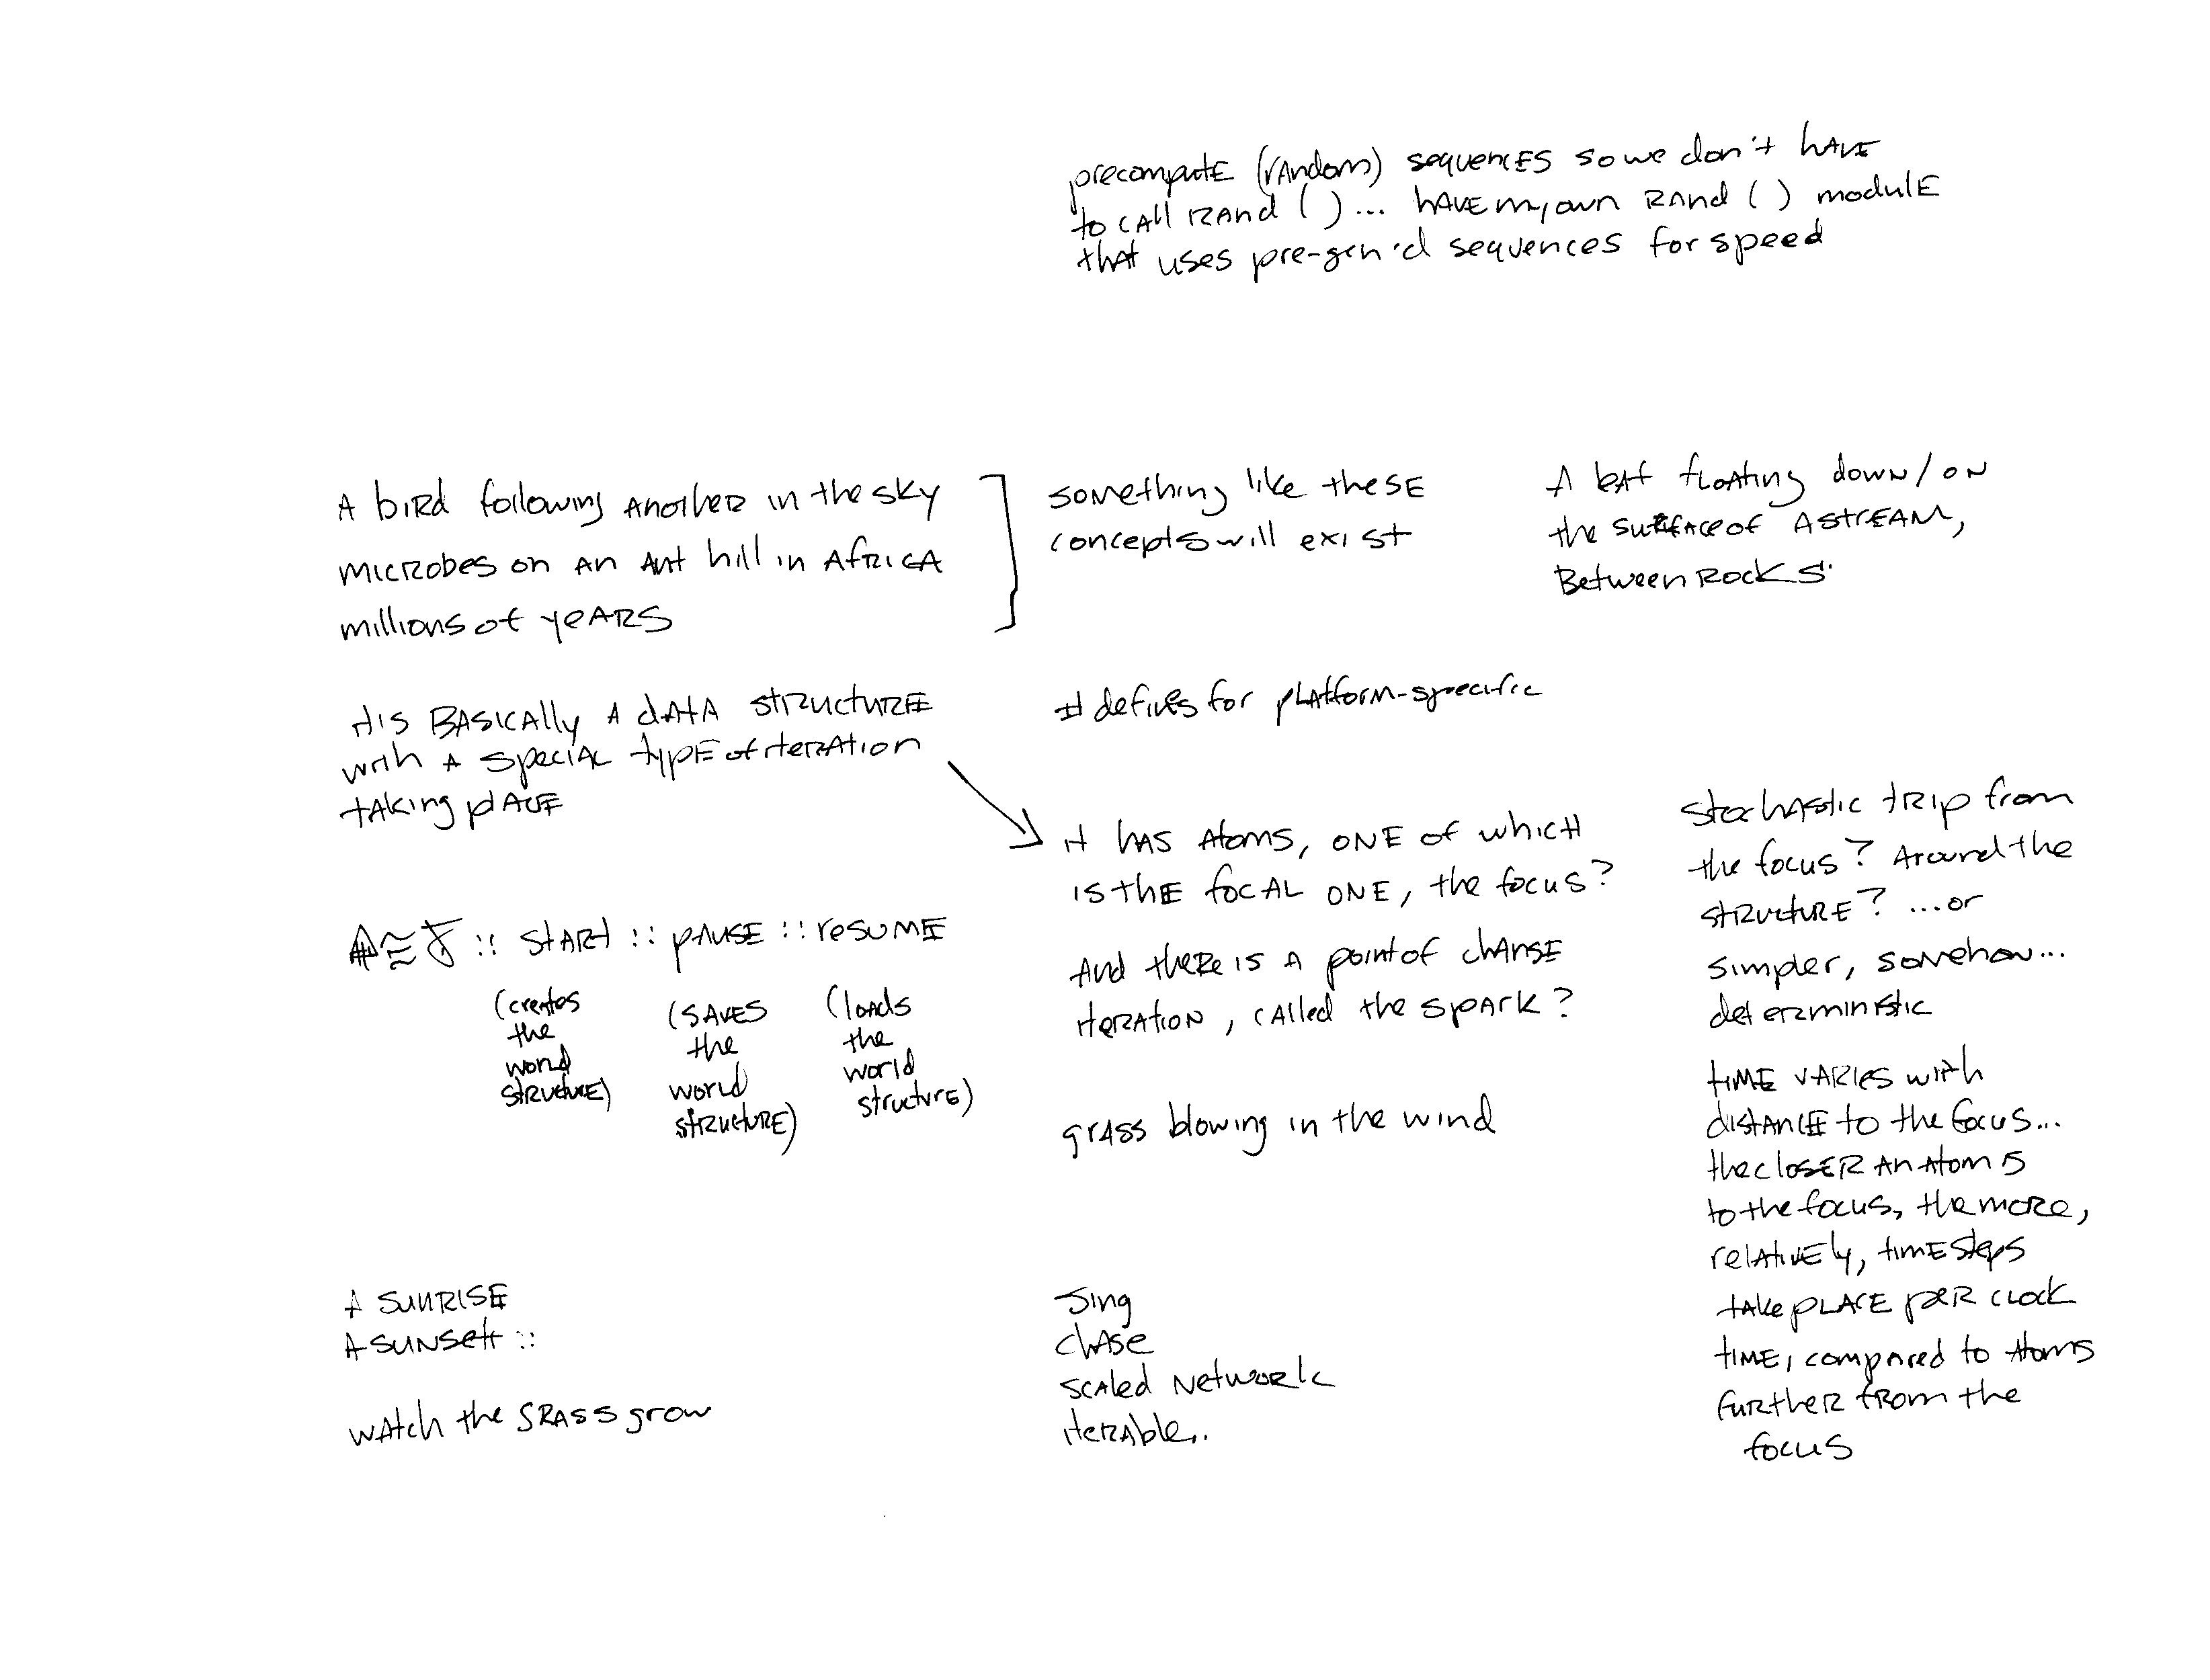 precompute (random) sequences so we don't have
to call rand ( ) ... have my own rand ( ) module
that uses pre-gen'd sequences for speed
A bird following another in the sky
microbes on an ant hill in Africa
millions of years
something like these
concepts will exist
A leaf floating down/on
the surface of a stream,
Between rocks
It is basically a data structure
with a special type of iteration
taking place
# defines for platform-specific
it has atoms, one of which
is the focal one, the focus?
And there is a point of change
iteration, called the spark?
stochastic trip from
the focus? Around the
structure? ...or
simpler, somehow...
deterministic
:: start :: pause :: resume
(creates
the
world
structure)
(saves
the
world
structure)
(loads
the
world
structure)
grass blowing in the wind
time varies with
distance to the focus...
the closer an atom is
to the focus, the more,
relatively, timesteps
take place per clock
time, compared to atoms
further from the
focus
A sunrise
A sunset ::
watch the grass grow
chase
scaled network
iterable..